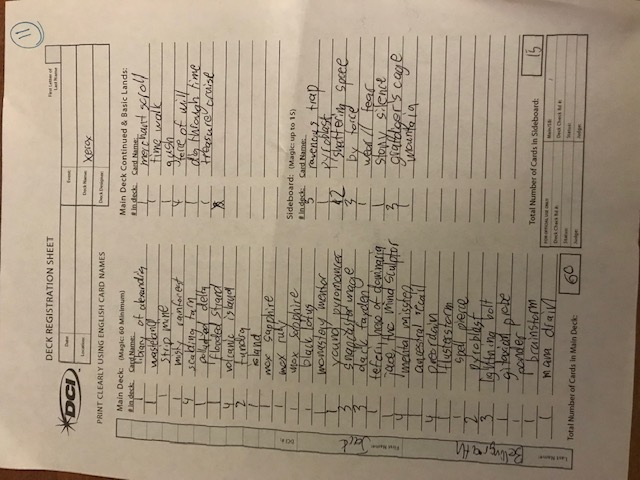 11
DECK REGISTRATION SHEET
First Letter of
Last Name
DCI
Date:
Event:
Location:
Deck Name: Xerox
Deck Designer:
PRINT CLEARLY USING ENGLISH CARD NAMES
Main Deck: (Magic: 60 Minimum)
# in deck: Card Name:
1 library of alexandria
1 wasteland
1 strip mine
1 misty rainforest
4 scalding tarn
1 polluted delta
1 flooded strand
4 volcanic island
2 tundra
1 island
1 mox sapphire
1 mox ruby
mox sapphire
black lotus
1 monastery mentor
1 young pyromancer
3 snapcaster mage
3 dack fayden
1 teferi, hero of dominaria
1 jace, the mind sculptor
4 mental misstep
1 ancestral recall
4 preordain
1 flusterstorm
1 spell pierce
2 pyroblast
3 lightning bolt
1 gitaxian probe
1 ponder
1 brainstorm
1 mana drain
Total Number of Cards in Main Deck: 60
Main Deck Continued & Basic Lands:
# in deck: Card Name:
1 merchant scroll
1 time walk
4 gush
force of will
1 dig through time
1 treasure cruise
Sideboard: (Magic: up to 15)
# in deck: Card Name:
3 ravenous trap
1 pyroblast
2 shattering spree
by force
1 wear // tear
1 stony silence
3 grafdigger's cage
1 mountain
Total Number of Cards in Sideboard: 15
FOR OFFICIAL USE ONLY
Main/SB: /
Deck Check Rd #:
Deck Check Rd #:
Status:
Status:
Judge:
Judge:
DCI #:
First Name: Jard
Last Name: